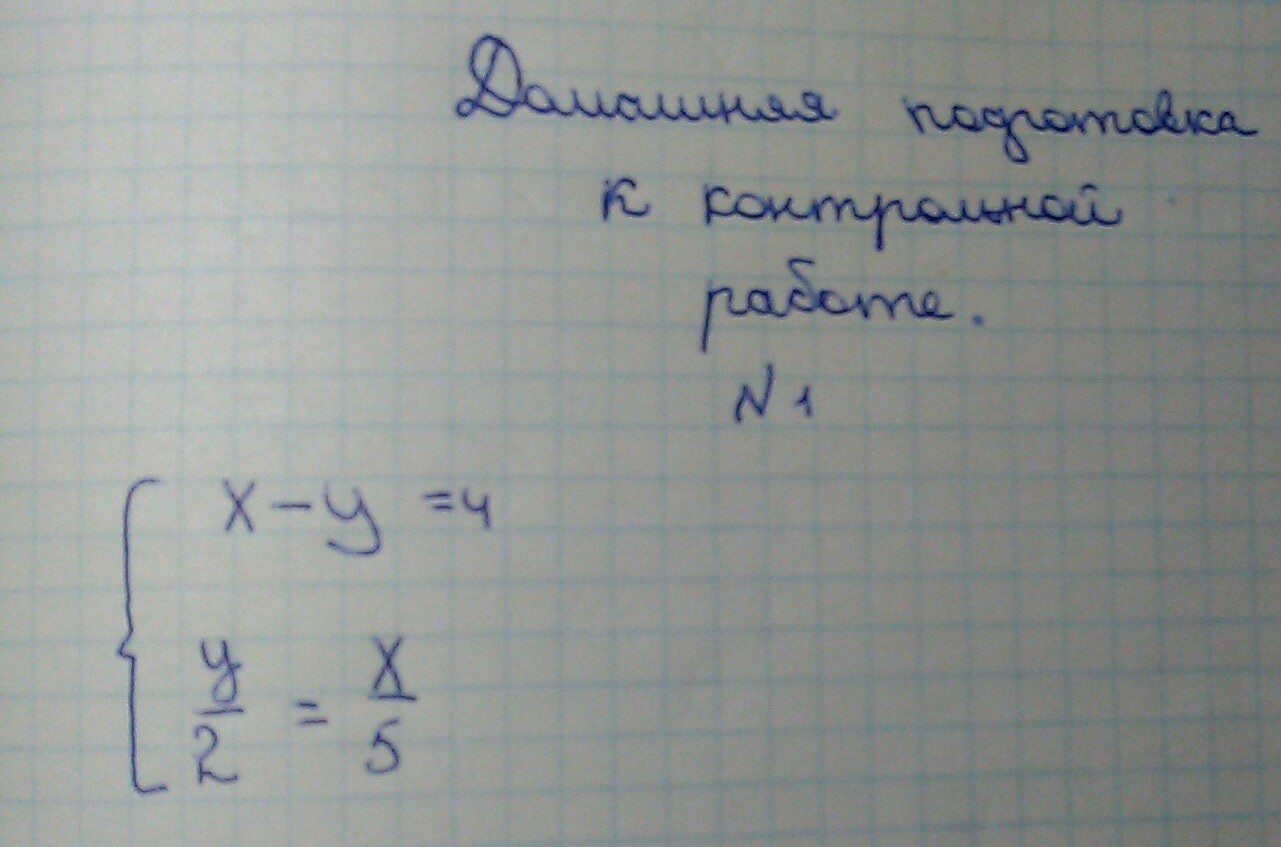 Домашняя подготовка
к контрольной
работе.
N 1
x - y = 4
y/2 = x/5